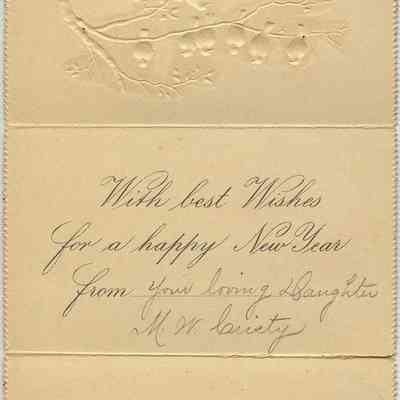 With best Wishes
for a happy New Year
from your loving Daughter
M. W.